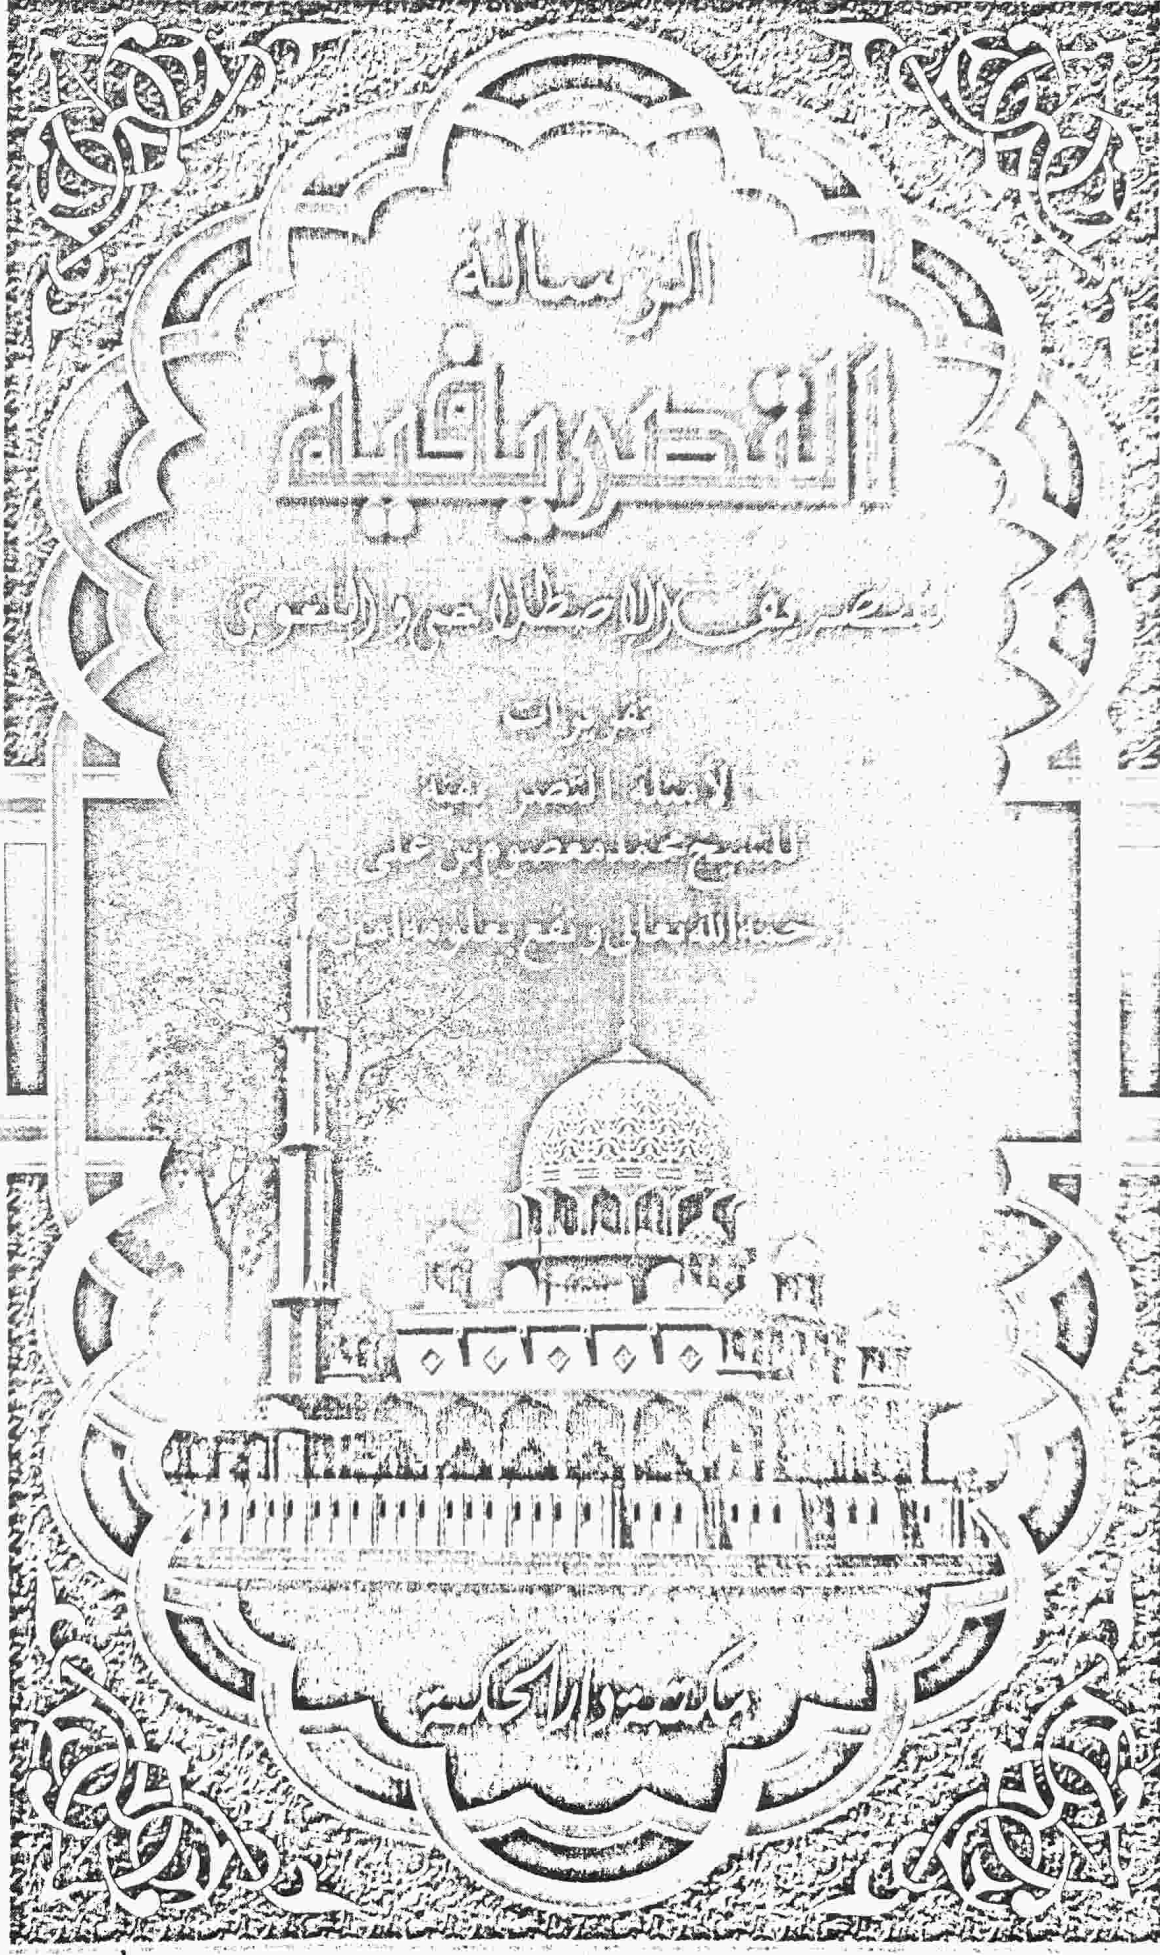 الرسالة
التصريفية
للتصريف الاصطلاحى واللغوى
تقريرات
لأمثلة التصريفية
للشيخ محمد معصوم بن على
رحمه الله تعالى ونفع بعلومه امين
مكتبة دار الحكمة